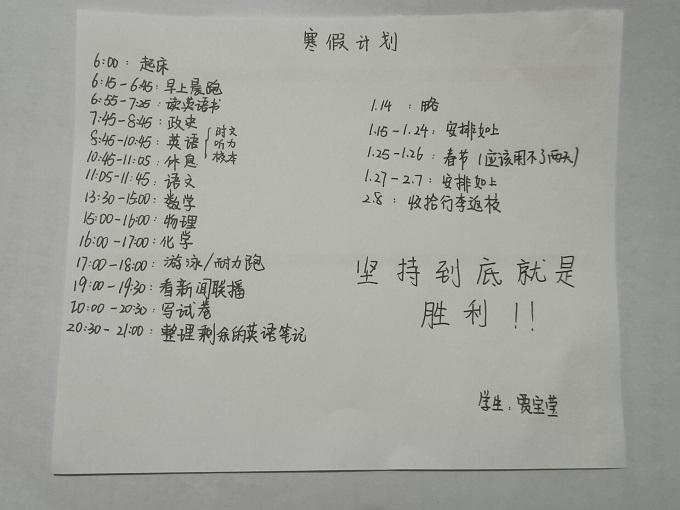 寒假计划
6:00：起床
6:15-6:45：早上晨跑
6:55-7:25：读英语书
7:45-8:45：政史
8:45-10:45：英语{时文 听力 校本
10:45-11:05：休息
11:05-11:45：语文
13:30-15:00：数学
15:00-16:00：物理
16:00-17:00：化学
17:00-18:00：游泳/耐力跑
19:00-19:30：看新闻联播
20:00-20:30：写试卷
20:30-21:00：整理剩余的英语笔记
1.14：略
1.15-1.24：安排如上
1.25-1.26：春节（应该用不了两天）
1.27-2.7：安排如上
2.8：收拾行李返校
坚持到底就是
胜利!!
学生：贾宝莹